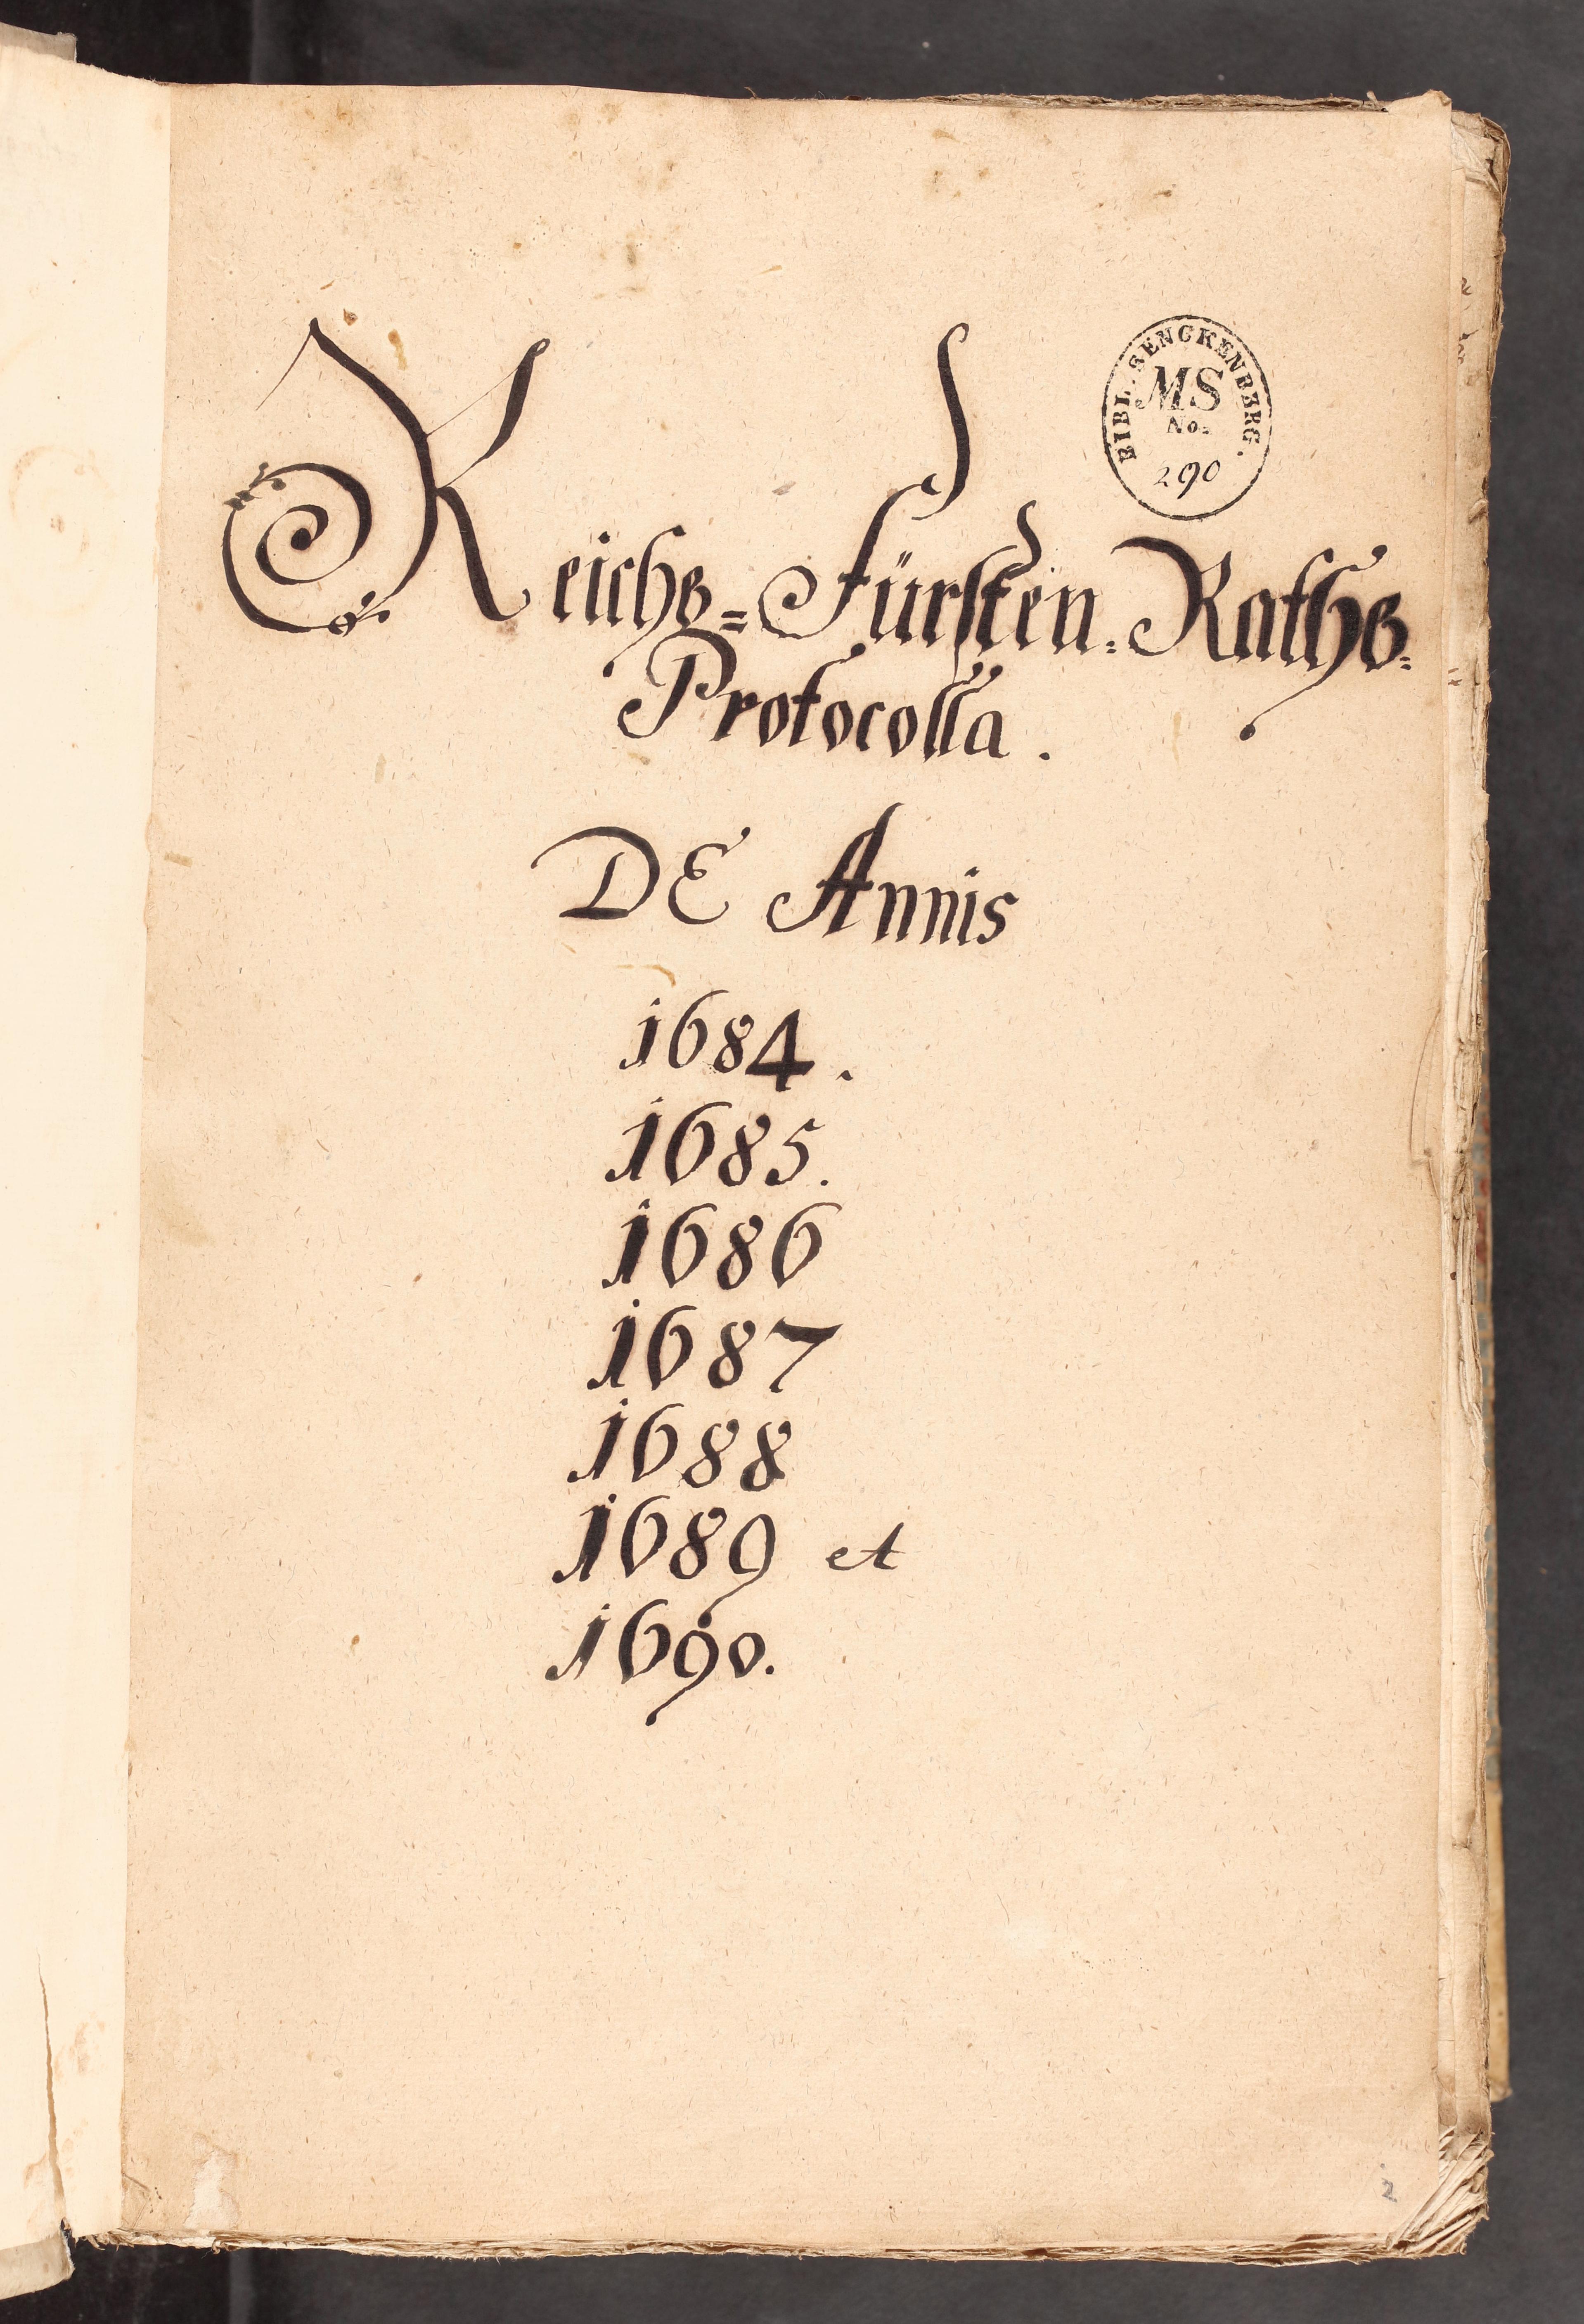 BIBL. SENCKENBERG.
MS
No.
290
Reichs=Fürsten=Raths=
Protocolla.
DE Annis
1684.
1685.
1686
1687
1688
1689 et
1690.
2